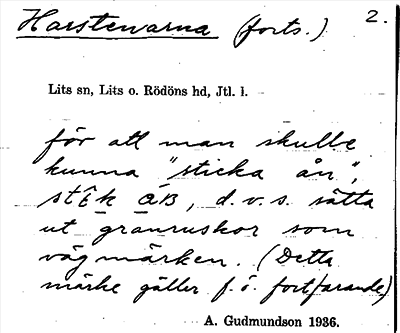 Harstenarna (forts.) 2.
Lits sn, Lits o. Rödöns hd, Jtl. l.
för att man skulle
kunna "sticka ån",
d.v.s. sätta
ut granruskor som
vägmärken. (Detta
märke gäller f.ö. fortfarande)
A. Gudmundson 1936.